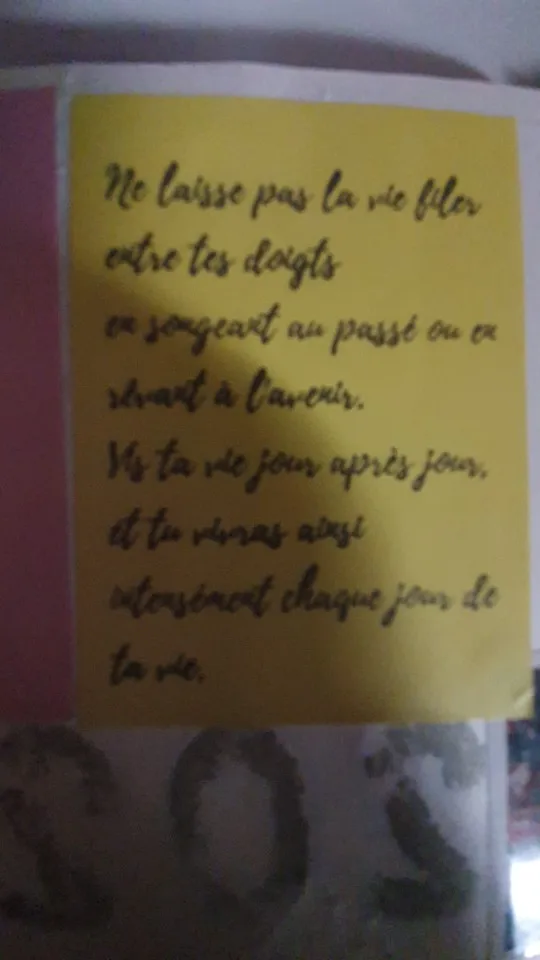 Ne laisse pas la vie filer
entre tes doigts
en songeant au passé ou en
rêvant à l'avenir.
Vis ta vie jour après jour,
et tu vivras ainsi
intensément chaque jour de
ta vie.
202